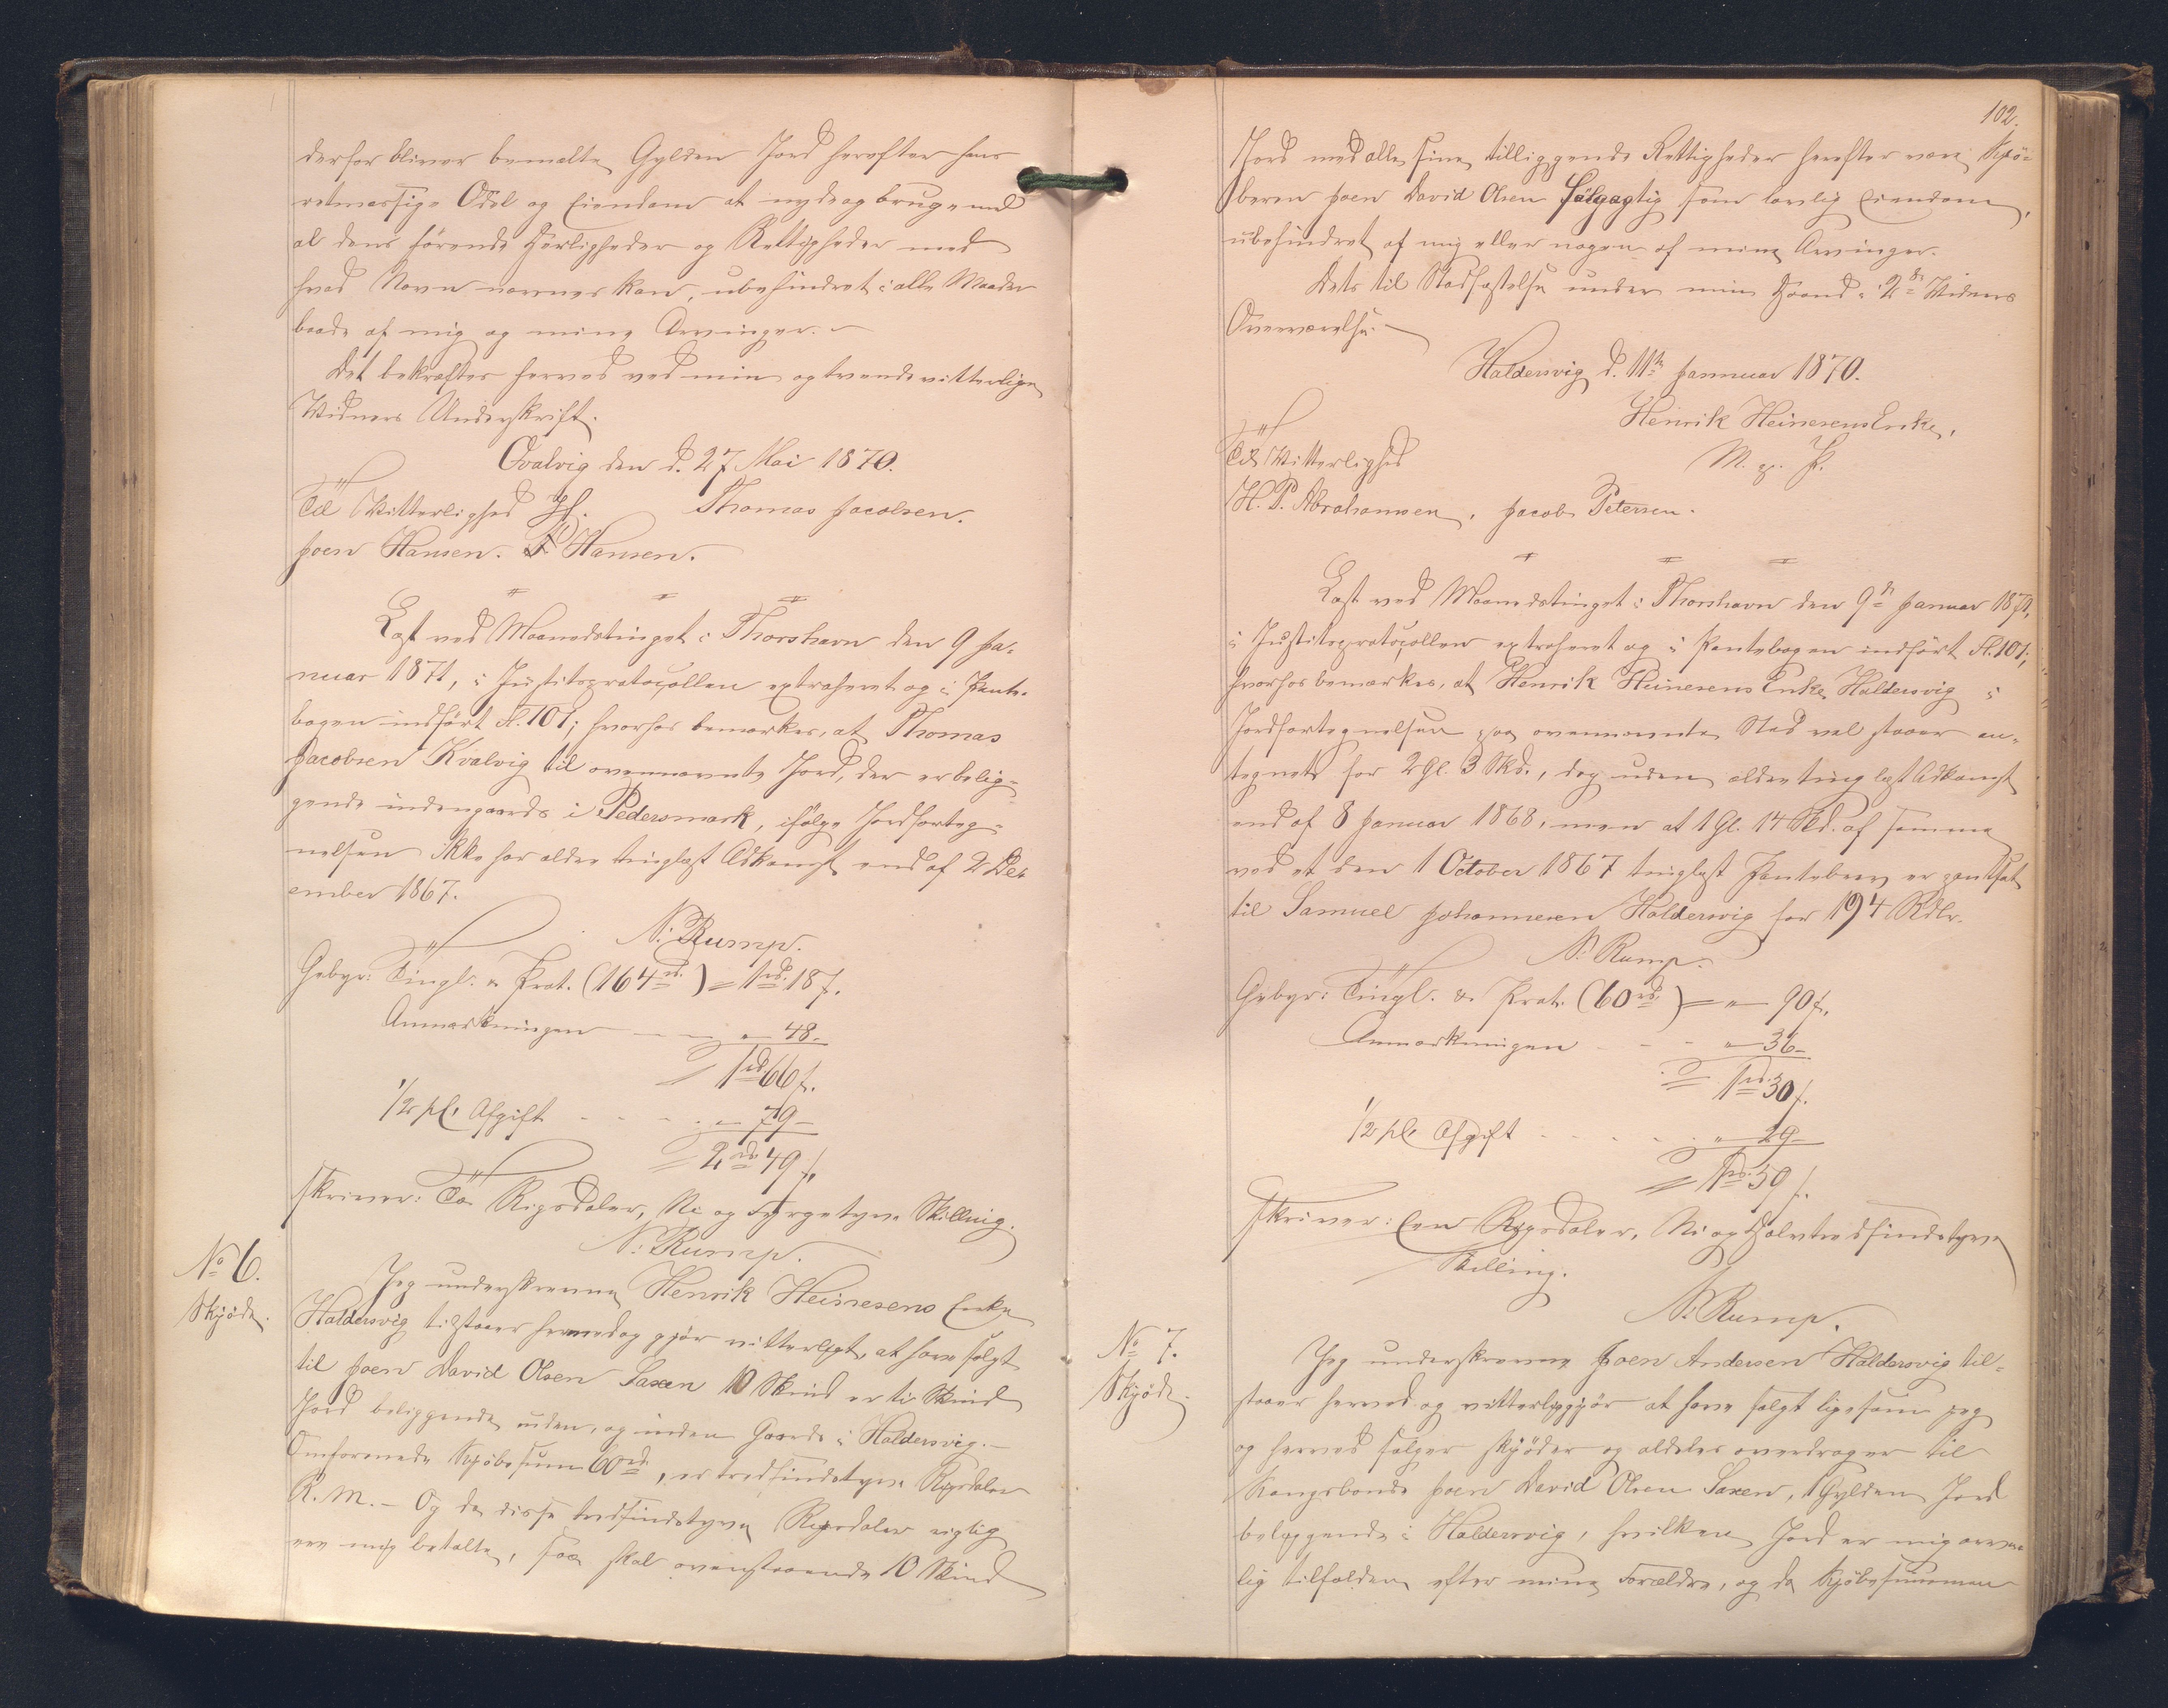 derfor bliver bemælte Gylden Jord herefter hans
retmæssige Odel og Eiendom at nyde og bruge med
al dens førende Herligheder og Rettigheder med
hvad Navn nævnes kan, ubehindret i alle Maader
baade af mig og mine Arvinger.
Det bekræftes herved ved min og tvende vitterlige
Vidners Underskrift.
Qvalvig den d. 27 Mai 1870.
Til Vitterlighed Thomas Jacobsen.
Joen Hansen. P. Hansen.
Læst ved Maanedstinget i Thorshavn den 9 Ja-
nuar 1871, i Justitsprotocollen extraheret og i Pante-
bogen indført fl. 101; hvorhos bemærkes, at Thomas
Jacobsen Kvalvig til ovennævnte Jord, der er belig-
gende indengaards i Pedersmark, ifølge Jordforteg-
nelsen ikke har ældre tinglæst Adkomst end af 2 Dec
ember 1867.
N: Rump.
Gebyr: Tingl. & Prot. (164 rd.) = 1 rd. 18 ſ.
Anmærkningen " 48 -
= 1 rd. 66 ſ.
1/2 pCt Afgift - - - " 79 -
= 2 rd. 49 ſ.
skriver: To Rigsdaler, Ni og Fyrgetyve Skilling.
N: Rump.
No 6.
Skjøde.
Jeg underskrevne Henrik Heinesens Enke
Haldersvig tilstaaer herved og gjør vitterligt, at have solgt
til Joen David Olsen Saxen 10 Skind er ti Skind
Jord beliggende uden, og inden Gaards i Haldersvig. -
Omforenede Kjøbesum 60 rd, er tredsindstyve Rigsdaler
R. M. - Og da disse tredsindstyve Rigsdaler rigtig
ere mig betalte, saa skal ovenstaaende 10 Skind
102.
Jord med alle sine tilliggende Rettigheder herefter være Kjø-
beren Joen David Olsen Følgagtig som lovlig Eiendom,
ubehindret af mig eller nogen af mine Arvinger.
Dets til Stadfæstelse under min Haand i 2de Vidners
Overværelse.
Haldersvig d. 11te Januar 1870.
Henrik Heinesens Enke,
M. p. P.
Til Vitterlighed
H. P. Abrahamsen, Jacob Petersen.
Læst ved Maanedstinget i Thorshavn den 9de Januar 1871,
i Justitsprotocollen extraheret og i Pantebogen indført fl. 101;
hvorhos bemærkes, at Henrik Heinesens Enke Haldersvig i
Jordfortegnelsen paa ovennævnte Sted vel staaer an-
tegnet for 2 Gl. 3 Skd., dog uden ældre tinglæst Adkomst
end af 8 Januar 1868, men at 1 Gl. 14 Skd. af samme
ved et den 1 October 1867 tinglæst Pantebrev er pantsat
til Samuel Johannesen Haldersvig for 194 Rdlr.
N: Rump.
Gebyr: Tingl. & Prot. (60 rd.) = " 90 ſ.
Anmærkningen - - - " 36 -
= 1 rd. 30 ſ.
1/2 pCt Afgift - - - " 29 -
= 1 rd. 59 ſ.
skriver: Een Rigsdaler, Ni og Halvtredsindstyve
Skilling.
N: Rump.
No 7.
Skjøde.
Jeg underskrevne Joen Andersen Haldersvig til-
staaer herved og vitterliggjør at have solgt ligesom jeg
og herved sælger skjøder og aldeles overdrager til
Kongsbonde Joen David Olsen Saxen, 1 Gylden Jord
beliggende i Haldersvig, hvilken Jord er mig arve-
lig tilfalden efter mine Forældre, og da Kjøbesummen